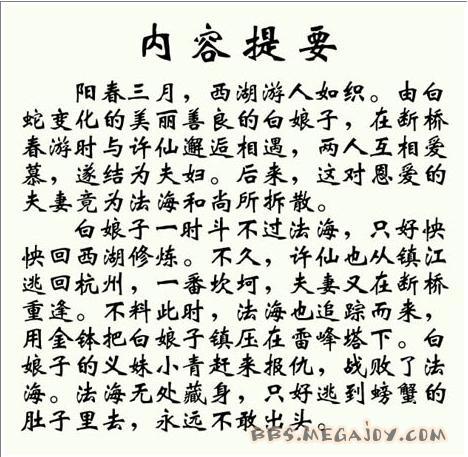 内容提要
阳春三月，西湖游人如织。由白
蛇变化的美丽善良的白娘子，在断桥
春游时与许仙邂逅相遇，两人互相爱
慕，遂结为夫妇。后来，这对恩爱的
夫妻竟为法海和尚所拆散。
白娘子一时斗不过法海，只好怏
怏回西湖修炼。不久，许仙也从镇江
逃回杭州，一番坎坷，夫妻又在断桥
重逢。不料此时，法海也追踪而来，
用金钵把白娘子镇压在雷峰塔下。白
娘子的义妹小青赶来报仇，战败了法
海。法海无处藏身，只好逃到螃蟹的
肚子里去，永远不敢出头。
BBS.MEGAJOY.COM